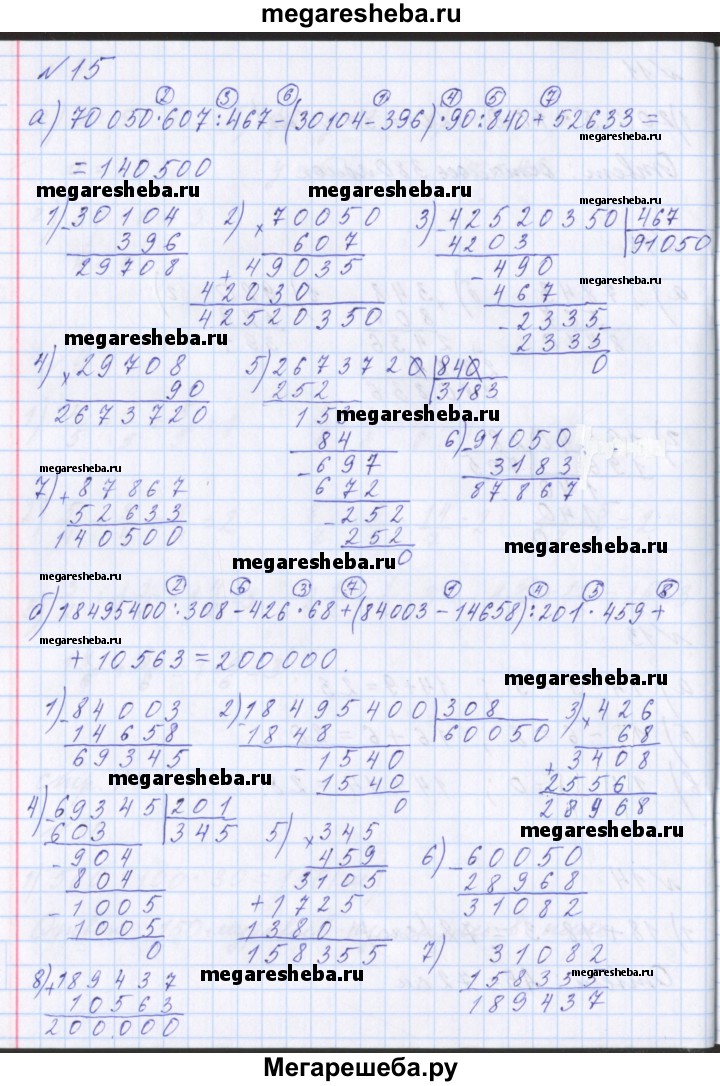 megaresheba.ru
№15
② ③ ⑥ ① ④ ⑤ ⑦
а) 70050·607:467-(30104-396)·90:840+52633=
megaresheba.ru
=140500
megaresheba.ru megaresheba.ru megaresheba.ru
1) 30104 2) 70050 3) 42520350 | 467
- 396 × 607 4203 91050
29708 + 49035 - 490
megaresheba.ru
42030 467
42520350 - 2335
megaresheba.ru 2335
0
4) × 29708 5) 2673720 | 840
90 252 3183
2673720 153
megaresheba.ru
84 6) - 91050
megaresheba.ru - 697 3183
7) + 87867 672 87867
52633 - 252
140500 252
0
megaresheba.ru megaresheba.ru
② ⑥ ③ ⑦ ① ④ ⑤ ⑧
б) 18495400:308-426·68+(84003-14658):201·459+
megaresheba.ru megaresheba.ru
+10563=200000.
megaresheba.ru
1) - 84003 2) 18495400 | 308 3) × 426
14658 - 1848 60050 68
69345 - 1540 + 3408
megaresheba.ru 1540 2556
0 28968
4) - 69345 | 201
603 345 5) × 345
megaresheba.ru
- 904 459 6) - 60050
804 3105 28968
- 1005 + 1725 31082
1005 1380
0 158355 7) 31082
8) + 189437 megaresheba.ru 158355 megaresheba.ru
10563 189437
200000
megaresheba.ru megaresheba.ru
Мегарешеба.ру